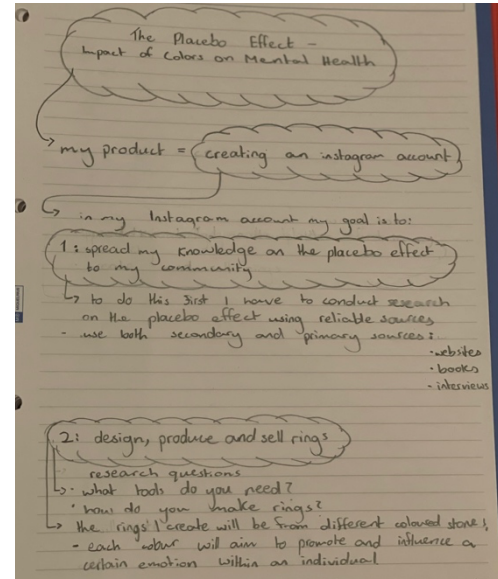 The Placebo Effect -
Impact of Colors on Mental Health
my product = creating an instagram account
in my Instagram account my goal is to:
1: spread my knowledge on the placebo effect
to my community
to do this first I have to conduct research
on the placebo effect using reliable sources
- use both secondary and primary sources:
· websites
· books
- interviews
2: design, produce and sell rings
research questions
· what tools do you need?
· how do you make rings?
the rings I create will be from different coloured stones,
- each colour will aim to promote and influence a
certain emotion within an individual